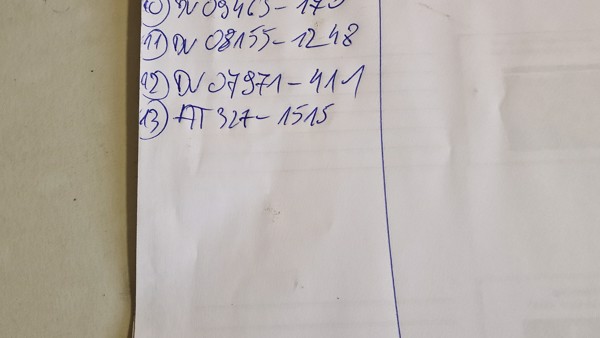 10) DN 09463-170
11) DN 08155-1248
12) DN 07971-411
13) AT 327-1515